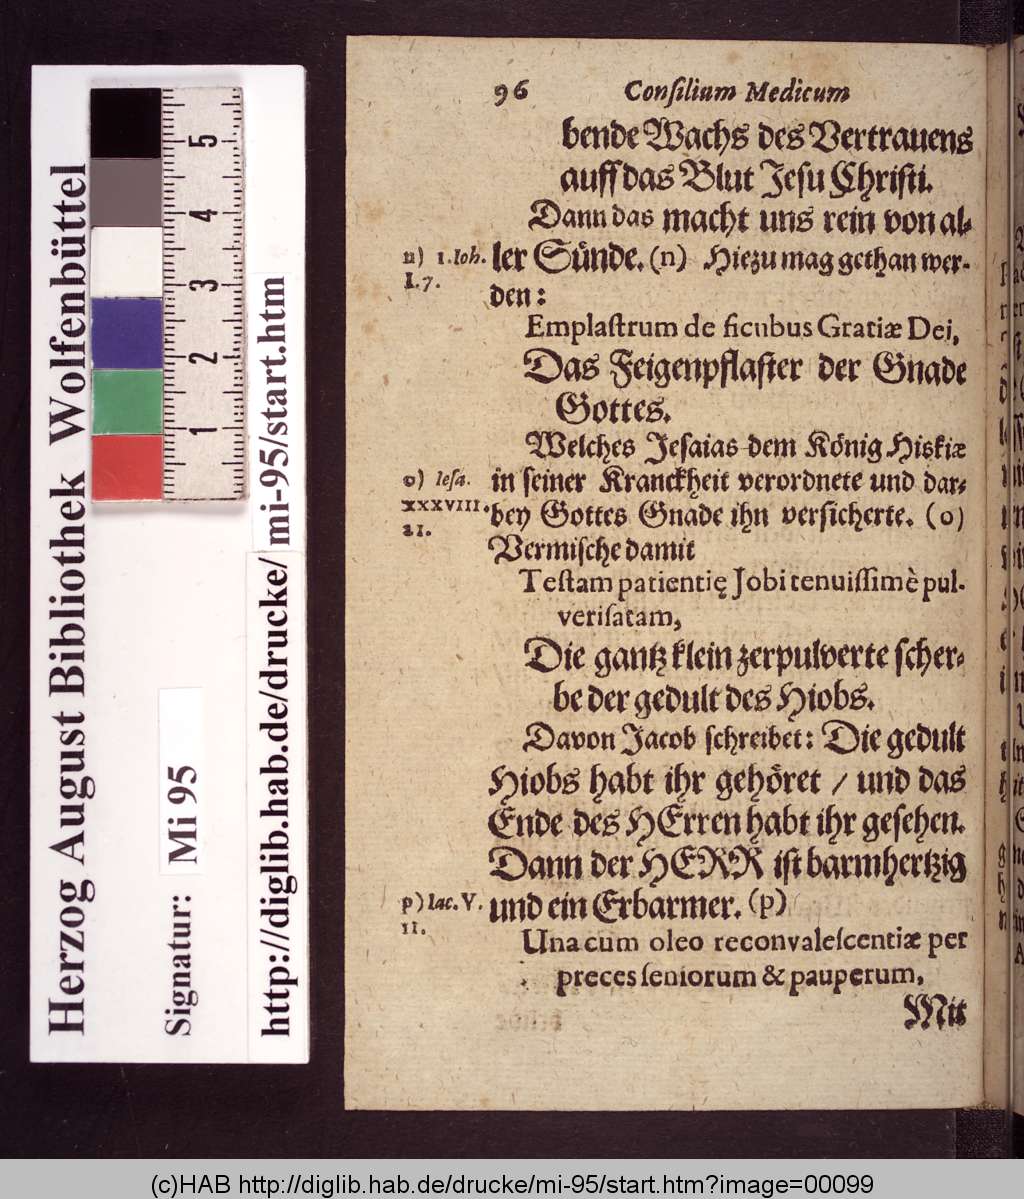 Herzog August Bibliothek Wolfenbüttel
Signatur: Mi 95
http://diglib.hab.de/drucke/mi-95/start.htm
5
4
3
2
1
96 Conſilium Medicum
bende Wachs des Vertrauens
auff das Blut Jeſu Chriſti.
Dann das macht uns rein von al-
n) 1. Ioh. ler Sünde. (n) Hiezu mag gethan wer-
I. 7. den:
Emplaſtrum de ficubus Gratiæ Dei,
Das Feigenpflaſter der Gnade
Gottes.
Welches Jeſaias dem König Hiskiæ
o) Ieſa. in ſeiner Kranckheit verordnete und dar-
XXXVIII. bey Gottes Gnade ihn verſicherte. (o)
21. Vermiſche damit
Teſtam patientię Jobi tenuiſſimè pul-
veriſatam,
Die gantz klein zerpulverte ſcher-
be der gedult des Hiobs.
Davon Jacob ſchreibet: Die gedult
Hiobs habt ihr gehöret / und das
Ende des HErren habt ihr geſehen.
Dann der HERR iſt barmhertzig
p) Iac. V. und ein Erbarmer. (p)
11.
Una cum oleo reconvaleſcentiæ per
preces ſeniorum & pauperum,
Mit
(c)HAB http://diglib.hab.de/drucke/mi-95/start.htm?image=00099